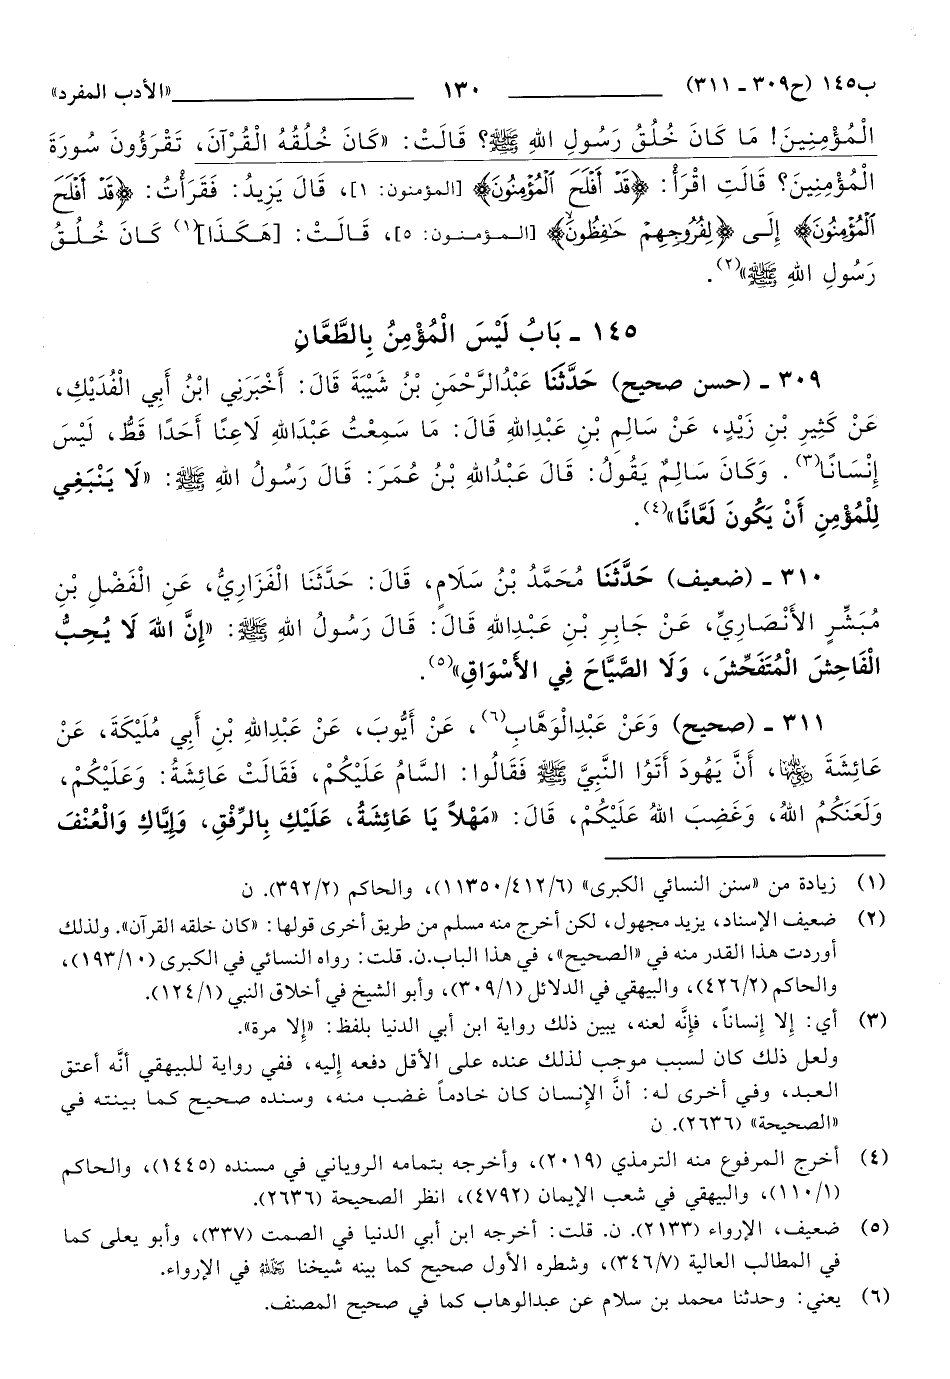 ب١٤٥ (ح٣٠٩ ـ ٣١١) ١٣٠ «الأدب المفرد»
الْمُؤْمِنِينَ! مَا كَانَ خُلُقُ رَسُولِ اللهِ ﷺ؟ قَالَتْ: «كَانَ خُلُقُهُ الْقُرْآنَ، تَقْرَؤُونَ سُورَةَ
الْمُؤْمِنِينَ؟ قَالَتِ اقْرَأْ: ﴿قَدْ أَفْلَحَ الْمُؤْمِنُونَ﴾ [المؤمنون: ١]، قَالَ يَزِيدُ: فَقَرَأْتُ: ﴿قَدْ أَفْلَحَ
الْمُؤْمِنُونَ﴾ إِلَى ﴿لِفُرُوجِهِمْ حَافِظُونَ﴾ [المؤمنون: ٥]، قَالَتْ: [هَكَذَا](١) كَانَ خُلُقُ
رَسُولِ اللهِ ﷺ»(٢).
١٤٥ ـ بَابُ لَيْسَ الْمُؤْمِنُ بِالطَّعَّانِ
٣٠٩ ـ (حسن صحيح) حَدَّثَنَا عَبْدُالرَّحْمَنِ بْنُ شَيْبَةَ قَالَ: أَخْبَرَنِي ابْنُ أَبِي الْفُدَيْكِ،
عَنْ كَثِيرِ بْنِ زَيْدٍ، عَنْ سَالِمِ بْنِ عَبْدِاللهِ قَالَ: مَا سَمِعْتُ عَبْدَاللهِ لَاعِنًا أَحَدًا قَطُّ، لَيْسَ
إِنْسَانًا(٣). وَكَانَ سَالِمٌ يَقُولُ: قَالَ عَبْدُاللهِ بْنُ عُمَرَ: قَالَ رَسُولُ اللهِ ﷺ: «لَا يَنْبَغِي
لِلْمُؤْمِنِ أَنْ يَكُونَ لَعَّانًا»(٤).
٣١٠ ـ (ضعيف) حَدَّثَنَا مُحَمَّدُ بْنُ سَلَامٍ، قَالَ: حَدَّثَنَا الْفَزَارِيُّ، عَنِ الْفَضْلِ بْنِ
مُبَشِّرٍ الأَنْصَارِيِّ، عَنْ جَابِرِ بْنِ عَبْدِاللهِ قَالَ: قَالَ رَسُولُ اللهِ ﷺ: «إِنَّ اللهَ لَا يُحِبُّ
الْفَاحِشَ الْمُتَفَحِّشَ، وَلَا الصَّيَّاحَ فِي الأَسْوَاقِ»(٥).
٣١١ ـ (صحيح) وَعَنْ عَبْدِالْوَهَّابِ(٦)، عَنْ أَيُّوبَ، عَنْ عَبْدِاللهِ بْنِ أَبِي مُلَيْكَةَ، عَنْ
عَائِشَةَ رضي الله عنها، أَنَّ يَهُودَ أَتَوُا النَّبِيَّ ﷺ فَقَالُوا: السَّامُ عَلَيْكُمْ، فَقَالَتْ عَائِشَةُ: وَعَلَيْكُمْ،
وَلَعَنَكُمُ اللهُ، وَغَضِبَ اللهُ عَلَيْكُمْ، قَالَ: «مَهْلاً يَا عَائِشَةُ، عَلَيْكِ بِالرِّفْقِ، وَإِيَّاكِ وَالْعُنْفَ
(١) زيادة من «سنن النسائي الكبرى» (١١٣٥٠/٤١٢/٦)، والحاكم (٣٩٢/٢). ن
(٢) ضعيف الإسناد، يزيد مجهول، لكن أخرج منه مسلم من طريق أخرى قولها: «كان خلقه القرآن». ولذلك
أوردت هذا القدر منه في «الصحيح»، في هذا الباب.ن. قلت: رواه النسائي في الكبرى (١٩٣/١٠)،
والحاكم (٤٢٦/٢)، والبيهقي في الدلائل (٣٠٩/١)، وأبو الشيخ في أخلاق النبي (١٢٤/١).
(٣) أي: إلا إنساناً، فإنَّه لعنه، يبين ذلك رواية ابن أبي الدنيا بلفظ: «إلا مرة».
ولعل ذلك كان لسبب موجب لذلك عنده على الأقل دفعه إليه، ففي رواية للبيهقي أنَّه أعتق
العبد، وفي أخرى له: أنَّ الإنسان كان خادماً غضب منه، وسنده صحيح كما بينته في
«الصحيحة» (٢٦٣٦). ن
(٤) أخرج المرفوع منه الترمذي (٢٠١٩)، وأخرجه بتمامه الروياني في مسنده (١٤٤٥)، والحاكم
(١١٠/١)، والبيهقي في شعب الإيمان (٤٧٩٢)، انظر الصحيحة (٢٦٣٦).
(٥) ضعيف، الإرواء (٢١٣٣). ن. قلت: أخرجه ابن أبي الدنيا في الصمت (٣٣٧)، وأبو يعلى كما
في المطالب العالية (٣٤٦/٧)، وشطره الأول صحيح كما بينه شيخنا رحمه الله في الإرواء.
(٦) يعني: وحدثنا محمد بن سلام عن عبدالوهاب كما في صحيح المصنف.